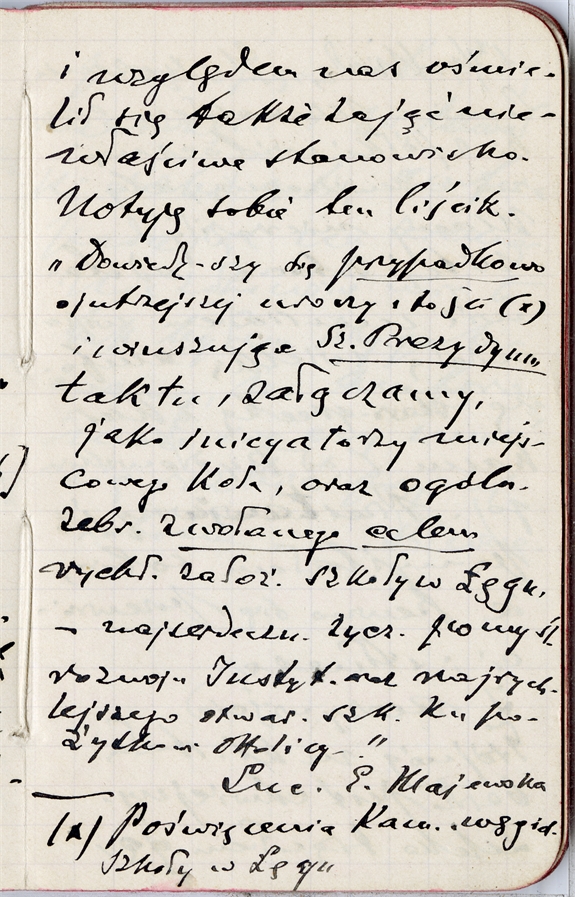 i względem nas ośmie-
lił się także zająć nie-
właściwe stanowisko.
Notuję sobie ten liścik.
"Dowiedz-szy się przypadkowo
o jutrzejszej uroczystości (x)
i Sz. Prezydyum
taktu, załączamy,
jako inicyatorzy miejs-
cowego Koła, oraz ogóln.
zebr. zwołanego celem
rychł. założ. szkoły w Łęgu,
- najserdeczn. życz. pomyśl.
rozwoju Instyt. oraz najrych-
lejszego otwar. szk. ku po-
żytkowi okolicy."
Luc. E. Majewska
(x) Poświęcenia Kam. węgieł.
szkoły w Łęgu